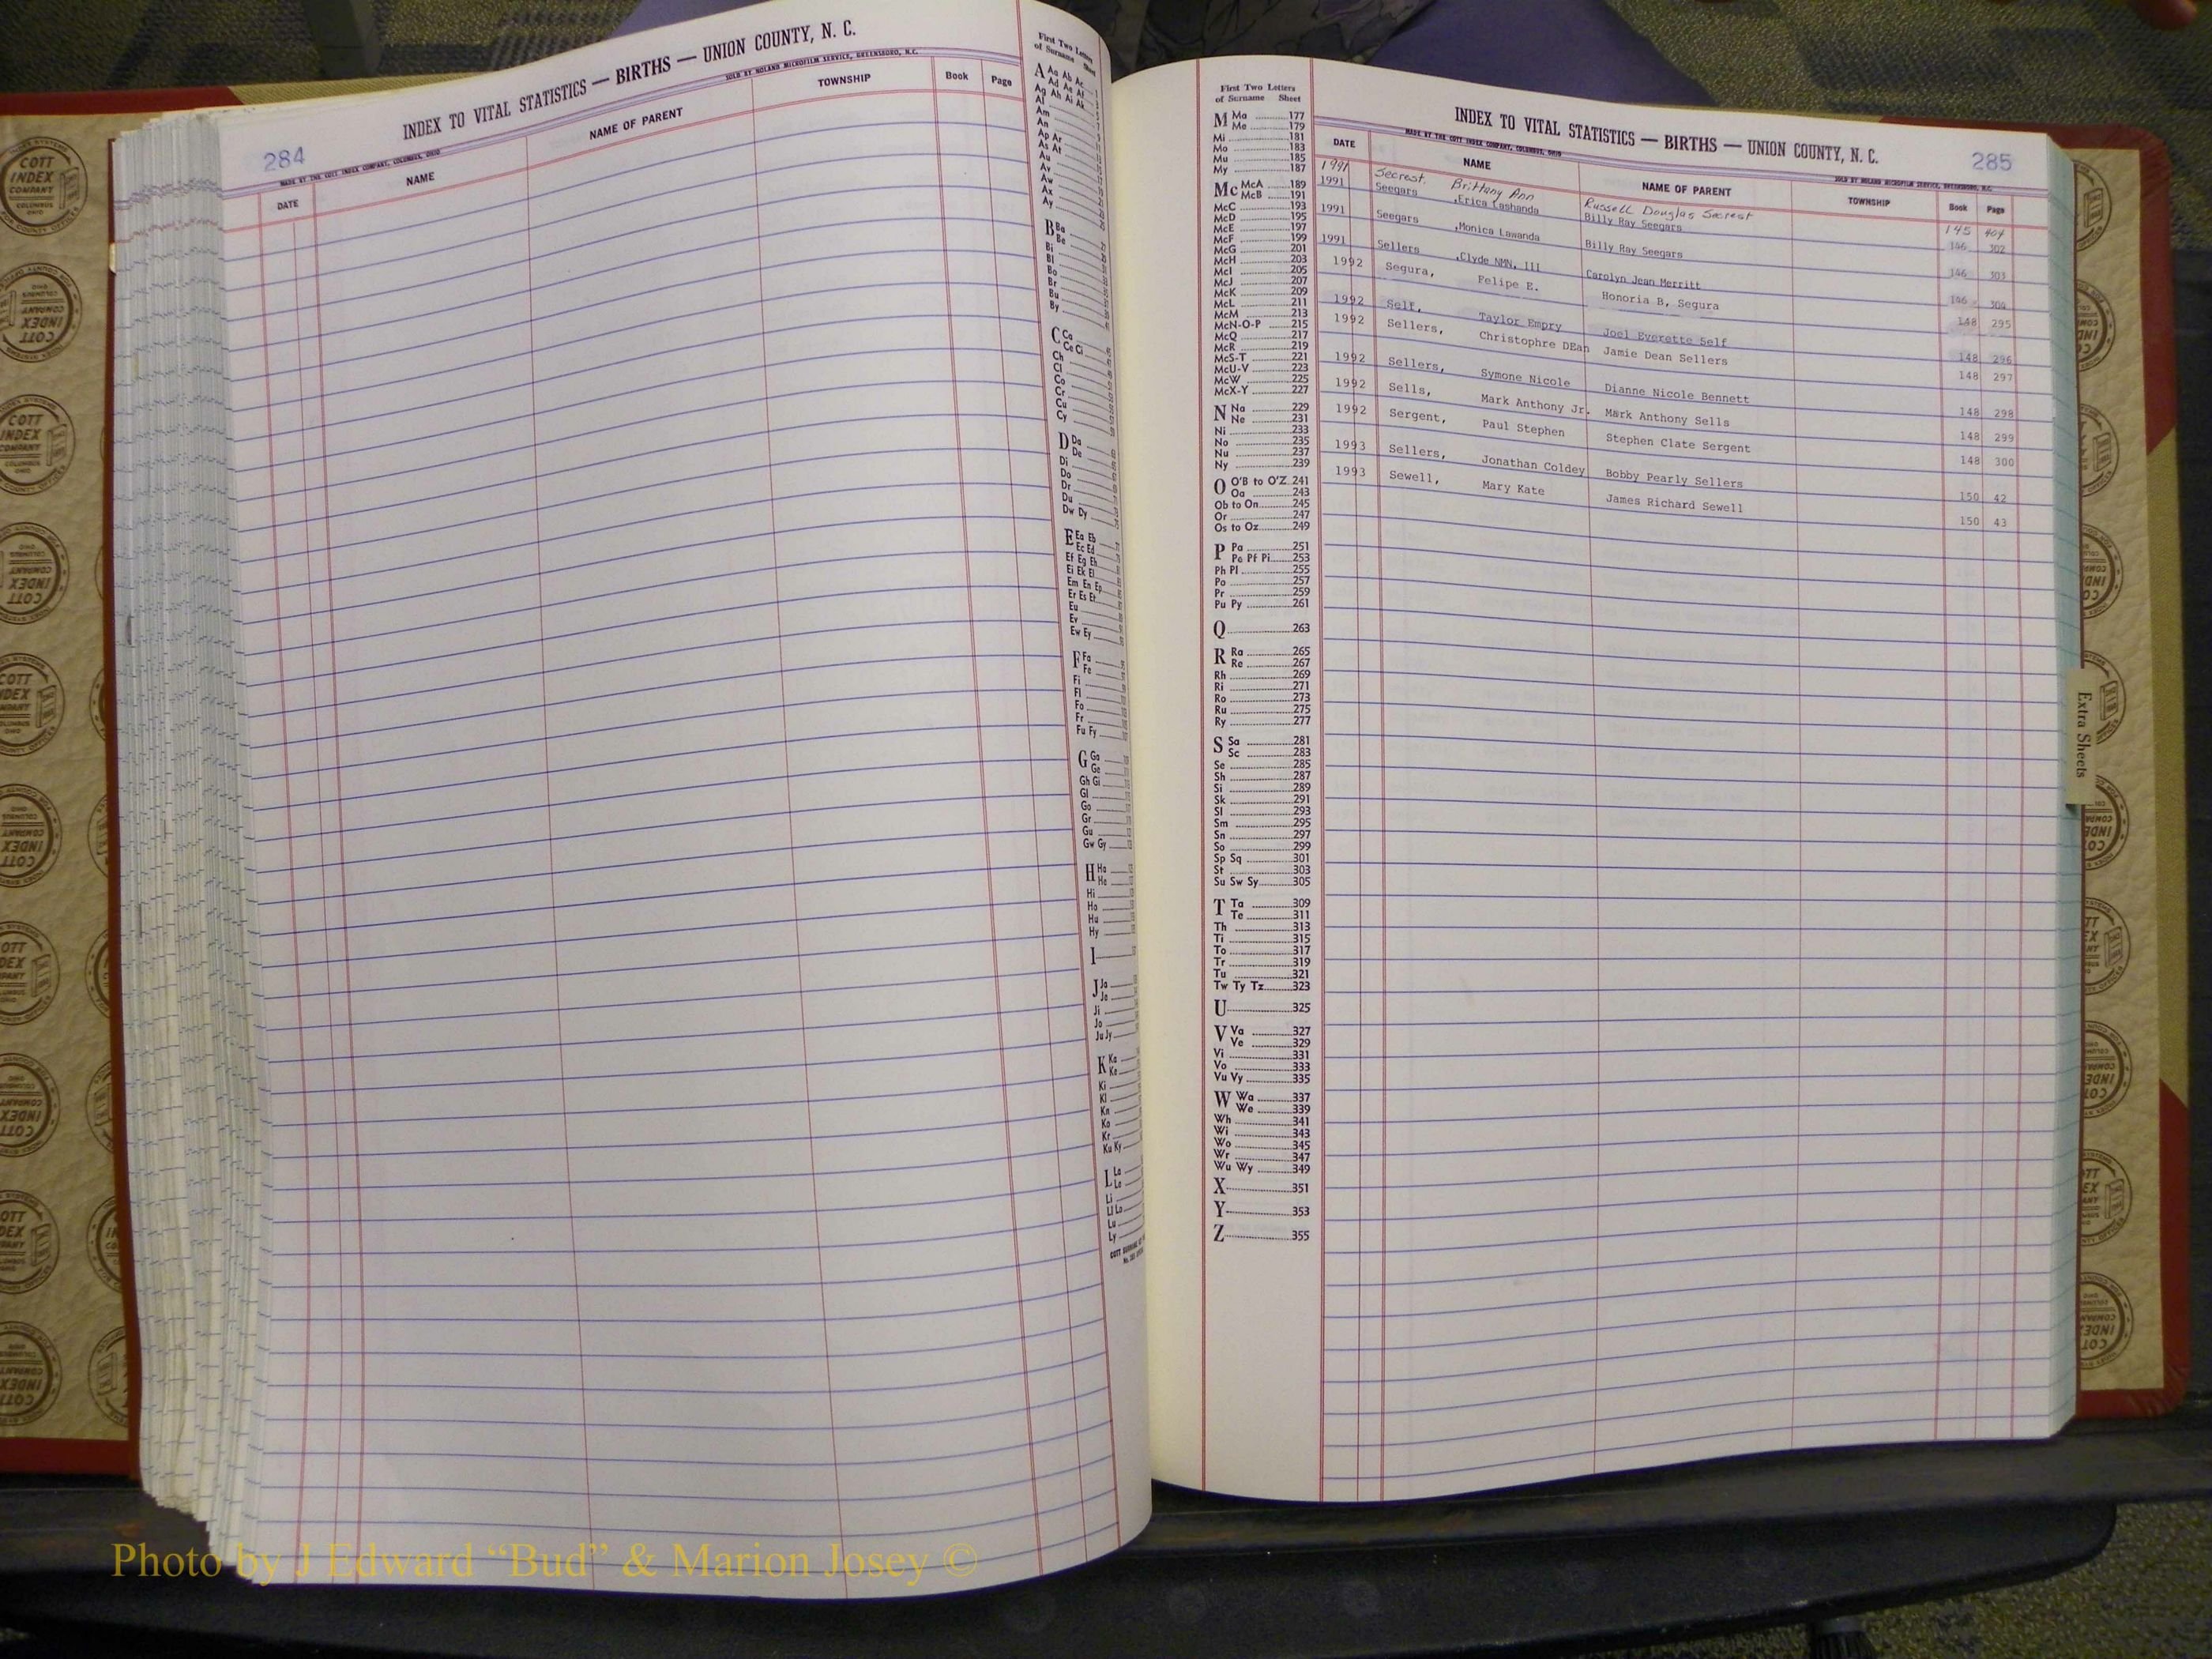 INDEX TO VITAL STATISTICS — BIRTHS — UNION COUNTY, N. C.
284
MADE BY THE COTT INDEX COMPANY, COLUMBUS, OHIO
SOLD BY NOLAND MICROFILM SERVICE, GREENSBORO, N.C.
DATE NAME NAME OF PARENT TOWNSHIP Book Page
First Two Letters
of Surname Sheet
A Aa Ab Ac
Ad Ae Af
Ag Ah Ai Ak
Al
Am
An
Ap Ar
As At
Au
Av
Aw
Ax
Ay
B Ba
Be
Bi
Bl
Bo
Br
Bu
By
C Ca
Ce Ci
Ch
Cl
Co
Cr
Cu
Cy
D Da
De
Di
Do
Dr
Du
Dw Dy
E Ea Eb
Ec Ed
Ef Eg Eh
Ei Ek El
Em En Ep
Er Es Et
Eu
Ev
Ew Ey
F Fa
Fe
Fi
Fl
Fo
Fr
Fu Fy
G Ga
Ge
Gh Gi
Gl
Go
Gr
Gu
Gw Gy
H Ha
He
Hi
Ho
Hu
Hy
I
J Ja
Je
Ji
Jo
Ju Jy
K Ka
Ke
Ki
Kl
Kn
Ko
Kr
Ku Ky
L La
Le
Li
Ll Lo
Lu
Ly
First Two Letters
of Surname Sheet
M Ma 177
Me 179
Mi 181
Mo 183
Mu 185
My 187
Mc McA 189
McB 191
McC 193
McD 195
McE 197
McF 199
McG 201
McH 203
McI 205
McJ 207
McK 209
McL 211
McM 213
McN-O-P 215
McQ 217
McR 219
McS-T 221
McU-V 223
McW 225
McX-Y 227
N Na 229
Ne 231
Ni 233
No 235
Nu 237
Ny 239
O O'B to O'Z 241
Oa 243
Ob to On 245
Or 247
Os to Oz 249
P Pa 251
Pe Pf Pi 253
Ph Pl 255
Po 257
Pr 259
Pu Py 261
Q 263
R Ra 265
Re 267
Rh 269
Ri 271
Ro 273
Ru 275
Ry 277
S Sa 281
Sc 283
Se 285
Sh 287
Si 289
Sk 291
Sl 293
Sm 295
Sn 297
So 299
Sp Sq 301
St 303
Su Sw Sy 305
T Ta 309
Te 311
Th 313
Ti 315
To 317
Tr 319
Tu 321
Tw Ty Tz 323
U 325
V Va 327
Ve 329
Vi 331
Vo 333
Vu Vy 335
W Wa 337
We 339
Wh 341
Wi 343
Wo 345
Wr 347
Wu Wy 349
X 351
Y 353
Z 355
INDEX TO VITAL STATISTICS — BIRTHS — UNION COUNTY, N. C.
285
MADE BY THE COTT INDEX COMPANY, COLUMBUS, OHIO
SOLD BY NOLAND MICROFILM SERVICE, GREENSBORO, N.C.
DATE NAME NAME OF PARENT TOWNSHIP Book Page
1991 Secrest. Brittany Ann Russell Douglas Secrest 145 404
1991 Seegars ,Erica Lashanda Billy Ray Seegars 146 302
1991 Seegars ,Monica Lawanda Billy Ray Seegars 146 303
1991 Sellers ,Clyde NMN, III Carolyn Jean Merritt 146 304
1992 Segura, Felipe E. Honoria B, Segura 148 295
1992 Self, Taylor Empry Joel Everette Self 148 296
1992 Sellers, Christophre DEan Jamie Dean Sellers 148 297
1992 Sellers, Symone Nicole Dianne Nicole Bennett 148 298
1992 Sells, Mark Anthony Jr. Mark Anthony Sells 148 299
1992 Sergent, Paul Stephen Stephen Clate Sergent 148 300
1993 Sellers, Jonathan Coldey Bobby Pearly Sellers 150 42
1993 Sewell, Mary Kate James Richard Sewell 150 43
Extra Sheets
COTT
INDEX
COMPANY
COLUMBUS
OHIO
Photo by J Edward “Bud” & Marion Josey ©